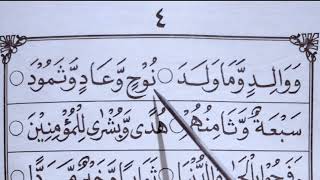 ٤
وَوَالِدٍ وَّمَا وَلَدَ ○ نُوْحٍ وَّعَادٍ وَّثَمُوْدَ ○
سَبْعَةٌ وَّثَامِنُهُمْ ○ هُدًى وَّبُشْرٰى لِلْمُؤْمِنِيْنَ ○
ثَوَابًا وَّخَيْرٌ مَّرَدًّا